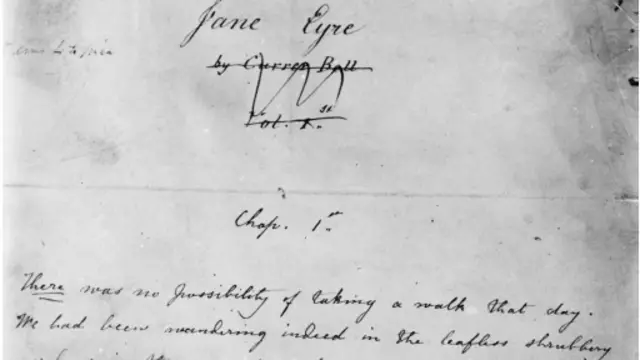 Jane Eyre
by Currer Bell
Vol. 1.st
Chap. 1.st
There was no possibility of taking a walk that day.
We had been wandering indeed in the leafless shrubbery